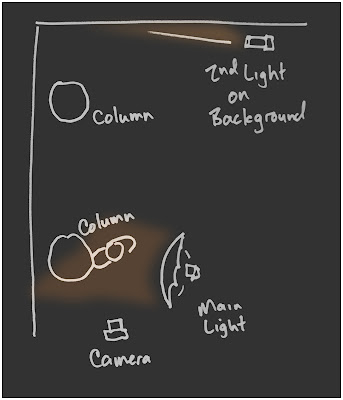 2nd Light
on
Background
Column
Column
Main
Light
Camera